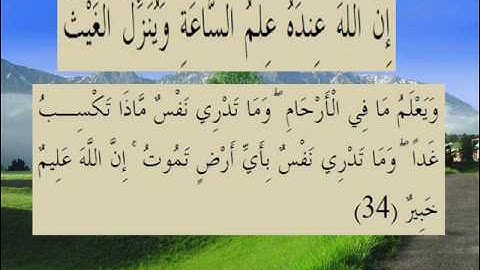 إِنَّ اللَّهَ عِندَهُ عِلْمُ السَّاعَةِ وَيُنَزِّلُ الْغَيْثَ
وَيَعْلَمُ مَا فِي الْأَرْحَامِ ۖ وَمَا تَدْرِي نَفْسٌ مَّاذَا تَكْسِـــبُ
غَداً ۖ وَمَا تَدْرِي نَفْسٌ بِأَيِّ أَرْضٍ تَمُوتُ ۚ إِنَّ اللَّهَ عَلِيمٌ
خَبِيرٌ (34)